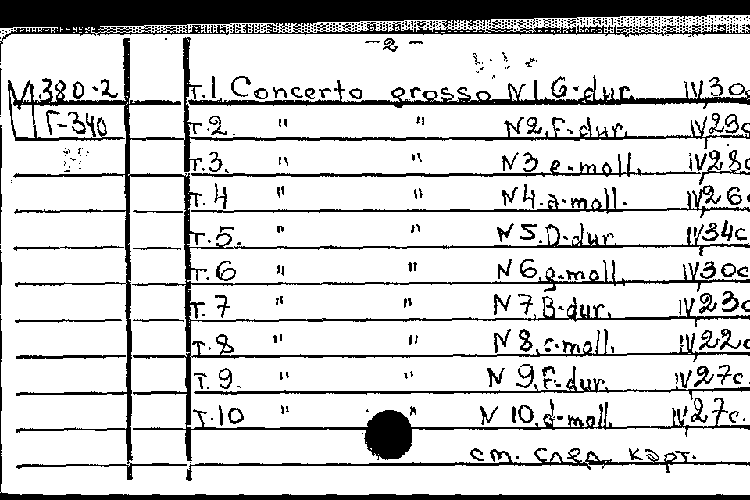 - 2 -
М 380-2 Т.1 Concerto grosso N1.G-dur. IV,30с
Г-340 Т.2 " " N2.F-dur. IV,23с
Т.3. " " N3.e-moll. IV,28с
Т.4 " " N4.a-moll. IV,26
Т.5. " " N5.D-dur IV,34с
Т.6 " " N6.g-moll. IV,30с
Т.7 " " N7.B-dur. IV,23с
Т.8 " " N8.c-moll. IV,22с
Т.9. " " N9.F-dur. IV,27с.
Т.10 " " N10.d-moll. IV,27с.
см. след. карт.